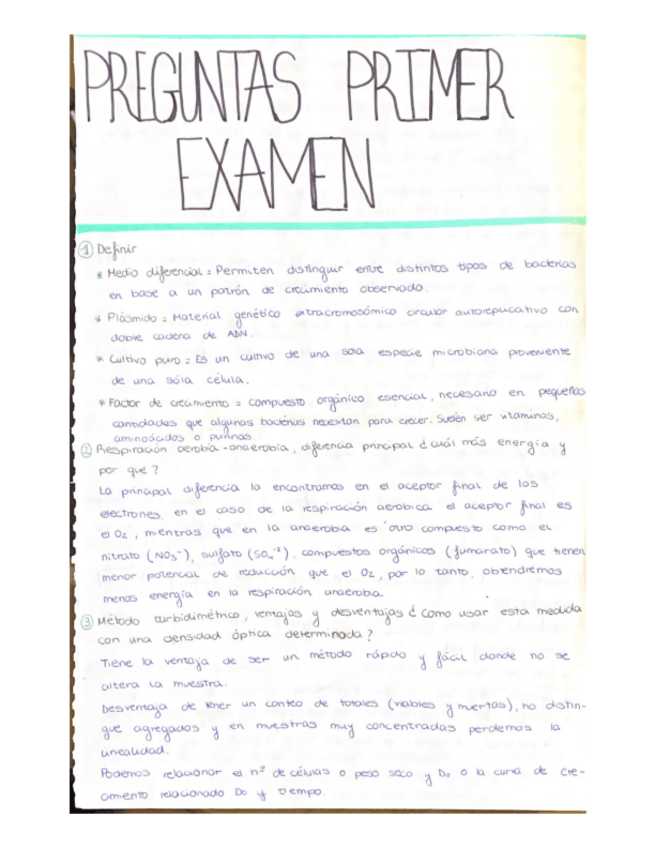 PREGUNTAS PRIMER
EXAMEN
① Definir
* Medio diferencial = Permiten distinguir entre distintos tipos de bacterias
en base a un patrón de crecimiento observado.
* Plásmido = Material genético extracromosómico circular autoreplicativo con
doble cadena de ADN.
* Cultivo puro = Es un cultivo de una sola especie microbiana proveniente
de una sóla célula.
* Factor de crecimiento = compuesto orgánico esencial, necesario en pequeñas
cantidades que algunas bacterias necesitan para crecer. Suelen ser vitaminas,
aminoácidos o purinas
② Respiración aerobia-anaerobia, diferencia principal ¿cuál más energía y
por qué?
La principal diferencia la encontramos en el aceptor final de los
electrones, en el caso de la respiración aerobica el aceptor final es
el O₂, mientras que en la anaerobia es otro compuesto como el
nitrato (NO₃⁻), sulfato (SO₄⁻²), compuestos orgánicos (fumarato) que tienen
menor potencial de reducción que el O₂, por lo tanto, obtendremos
menos energía en la respiración anaerobia.
③ Método turbidimétrico, ventajas y desventajas ¿como usar esta medida
con una densidad óptica determinada?
Tiene la ventaja de ser un método rápido y fácil donde no se
altera la muestra.
Desventaja de tener un conteo de totales (viables y muertas), no distin-
gue agregados y en muestras muy concentradas perdemos la
linealidad.
Podemos relacionar el nº de células o peso seco y Do o la curva de cre-
cimiento relacionado Do y tiempo.